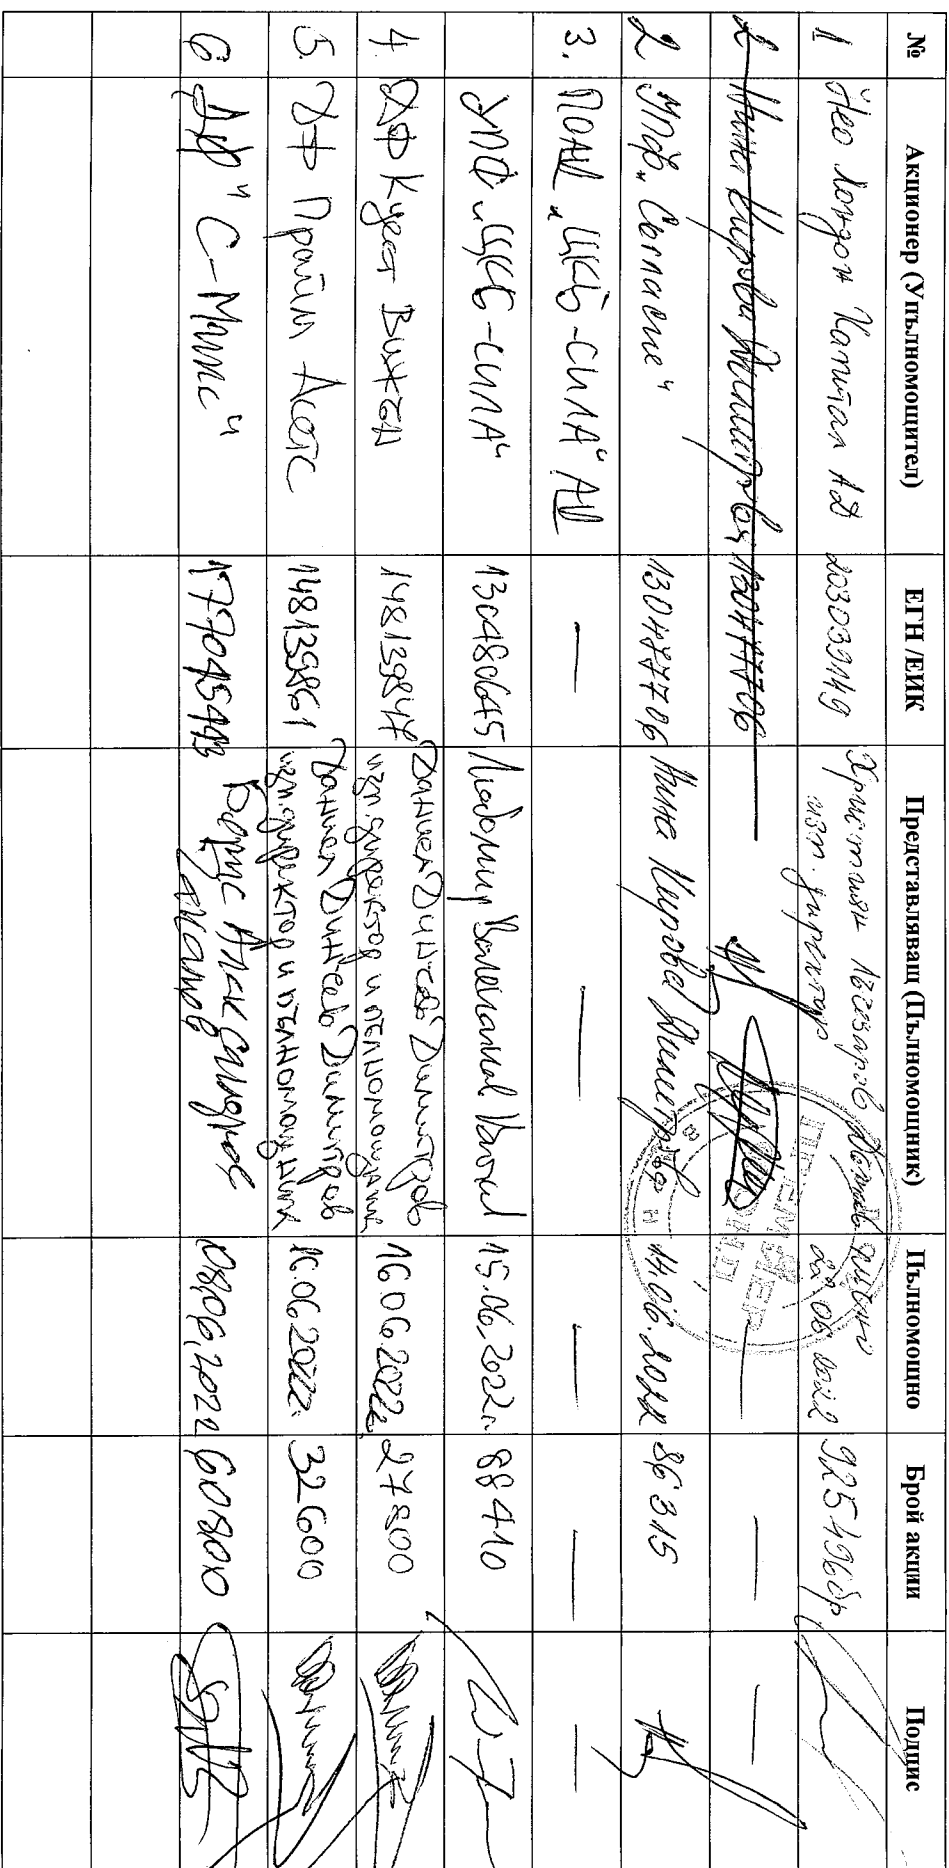 № Акционер (Упълномощител) ЕГН /ЕИК Представляващ (Пълномощник) Пълномощно Брой акции Подпис
1 Нео Лондон Капитал АД 203039149 Християн Дънков
изп. директор 22.06.2022 925496бр
2 Нина Кирова Димитрова 130477706 — —  —
2 УПФ „Съгласие“ 130477706 Нина Кирова Димитрова 14.06.2022 86315
3. ПОАД „ЦКБ-СИЛА“ АД — — — — —
УПФ „ЦКБ-СИЛА“ 130480645 Любомир 15.06.2022г. 88410
4. ДФ Куест Вижън 148139847 Даниел Динчев Димитров
изп. директор и пълномощник 16.06.2022 27800
5. ДФ Прайм Асетс 148139861 Даниел Динчев Димитров
изп. директор и пълномощник 16.06.2022г. 32600
6 ДФ "С-Микс" Борис Александров 08.06.2022 60800
ПРЕМИЕР
ФОНД